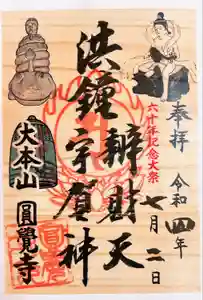 奉拝
令和四年
七月二日
六十年記念大祭
洪鐘 辨財天
宇賀神
大本山
圓覺寺